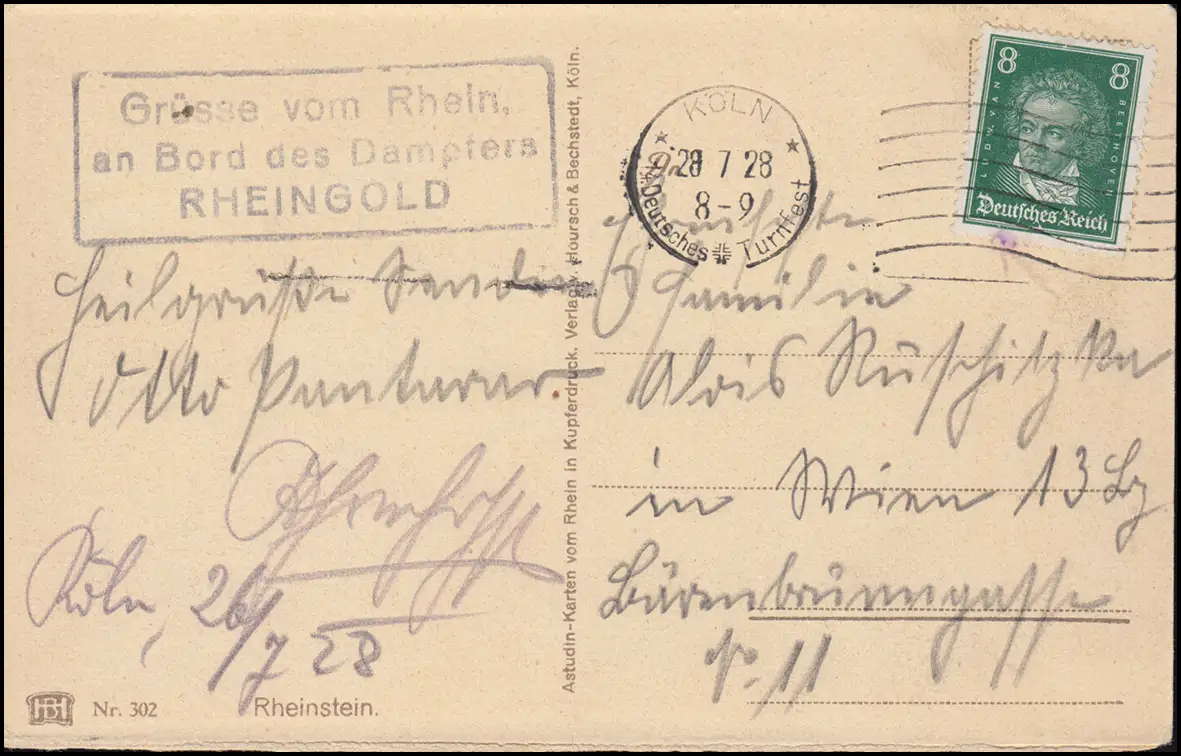 Grüsse vom Rhein,
an Bord des Dampfers
RHEINGOLD
Heilgrüße Senden
Otto Pantarar
Köln, 26/7 28
HB
Nr. 302
Rheinstein.
Astudin-Karten vom Rhein in Kupferdruck. Verlag v. Hoursch & Bechstedt, Köln.
KÖLN
28 7 28
8-9
Deutsches Turnfest
8 8
LUDW. VAN BEETHOVEN
Deutsches Reich
Familie
Alois Ruschitzka
in Wien 13
Bärenbrunngasse
No. 11